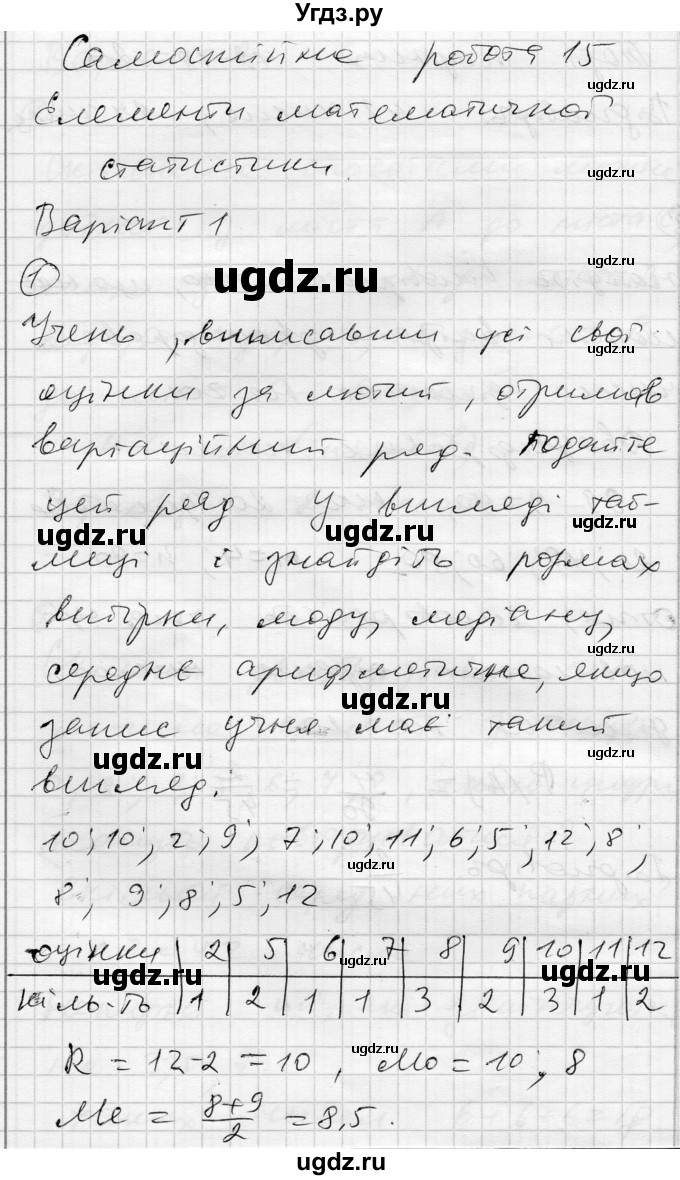 Угдз.ру
Самостійна робота 15
ugdz.ru
Елементи математичної
ugdz.ru
статистики.
ugdz.ru
Варіант 1
ugdz.ru
1
ugdz.ru
Учень, виписавши усі свої
ugdz.ru
оцінки за лютий, отримав
варіаційний ряд. Подайте
ugdz.ru
цей ряд у вигляді таб-
ugdz.ru
ugdz.ru
лиці і знайдіть розмах
вибірки, моду, медіану,
ugdz.ru
середнє арифметичне, якщо
ugdz.ru
запис учня має такий
ugdz.ru
ugdz.ru
вигляд:
10; 10; 2; 9; 7; 10; 11; 6; 5; 12; 8;
ugdz.ru
8; 9; 8; 5; 12
оцінки 2 5 6 7 8 9 10 11 12
ugdz.ru
ugdz.ru
ugdz.ru
кіль-ть 1 2 1 1 3 2 3 1 2
ugdz.ru
R = 12-2 = 10, Mo = 10; 8
Me = 8+9/2 = 8,5.
ugdz.ru
ugdz.ru